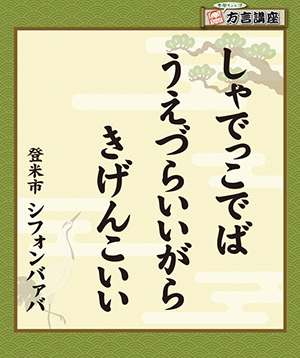 方言講座
しゃでっこでば
うえづらいいがら
きげんこいい
登米市 シフォンバァバ